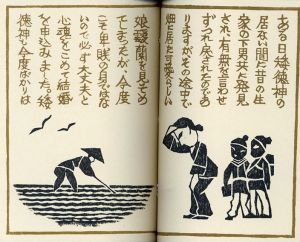 ある日矮徳神の
居ない間に昔の生
家の下男共に発見
され有無を言わせ
ずつれ戻されたのであ
りますがその途中で
畑に居た可愛らしい
娘瑷蘭を見そめ
てしまったが今度
こそ卑賎の身ではな
いので必ず大丈夫と
心魂をこめて結婚
を申込みました矮
徳神も今度ばかりは